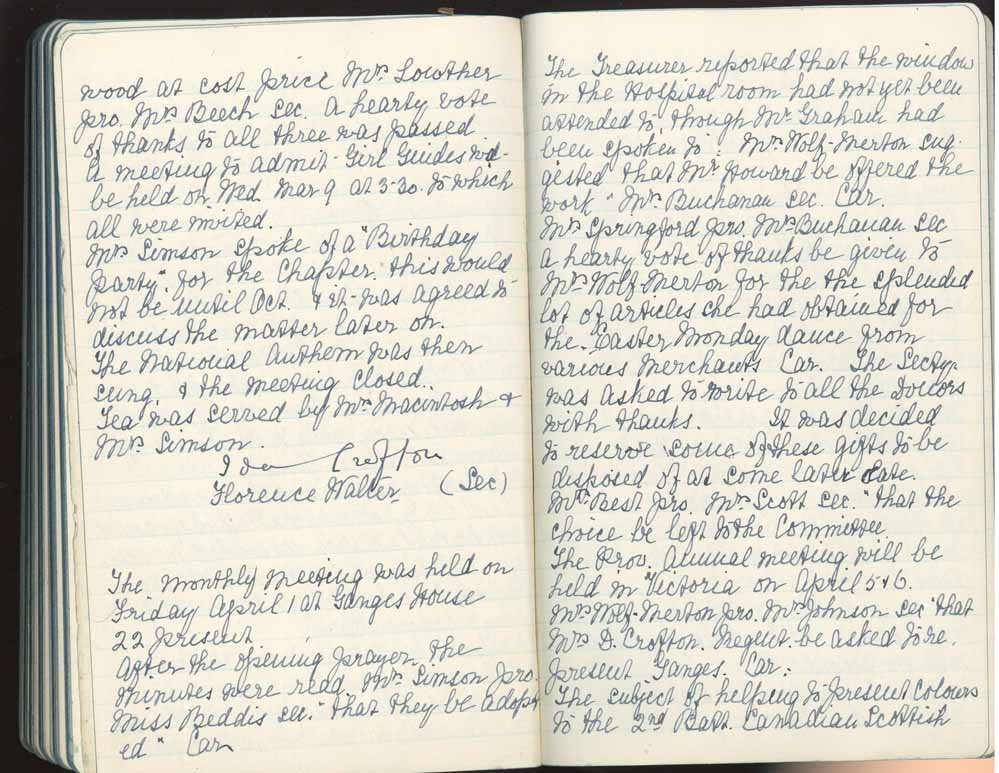 wood at cost price Mrs Lowther
pro. Mrs Beech sec. A hearty vote
of thanks to all three was passed.
A meeting to admit Girl Guides wd
be held on Wed. Mar 9 at 3-30. to which
all were invited.
Mrs Simson spoke of a "Birthday
Party". for the Chapter. this would
not be until Oct. & it was agreed to
discuss the matter later on.
The National Anthem was then
sung, & the meeting closed..
Tea was served by Mrs Macintosh &
Mrs Simson.
Ida Crofton
Florence Walter (Sec)
The monthly meeting was held on
Friday April 1 at Ganges House
22 present
After the opening prayer, the
minutes were read. Mrs Simson pro.
Miss Beddis sec. "that they be adopt
ed" Car
The Treasurer reported that the window
in the Hospital room had not yet been
attended to, though Mr Graham had
been spoken to: Mrs Wolf-Merton sug-
gested that Mr Howard be offered the
work" Mrs Buchanan sec. Car.
Mrs Springford pro. Mrs Buchanan sec
a hearty vote of thanks be given to
Mrs Wolf-Merton for the the splended
lot of articles she had obtained for
the Easter Monday dance from
various Merchants Car. The Secty.
was asked to write to all the Donors
with thanks. It was decided
to reserve some of these gifts to be
disposed of at some later date.
Mrs Best pro. Mrs Scott sec. "that the
choice be left to the Committee
The Prov. Annual meeting will be
held in Victoria on April 5 & 6.
Mrs Wolf-Merton pro. Mrs Johnson sec "that
Mrs D. Crofton. Regent. be asked to re.
present Ganges. Car:
The subject of helping to present Colours
to the 2nd Batt. Canadian Scottish